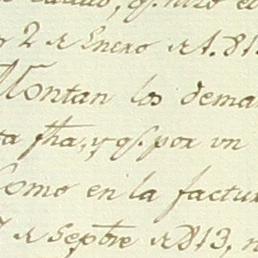 2 de Enero de 1.81
Montan los dema
ta fha, y qe. por un
Como en la factur
de Septre de 813,